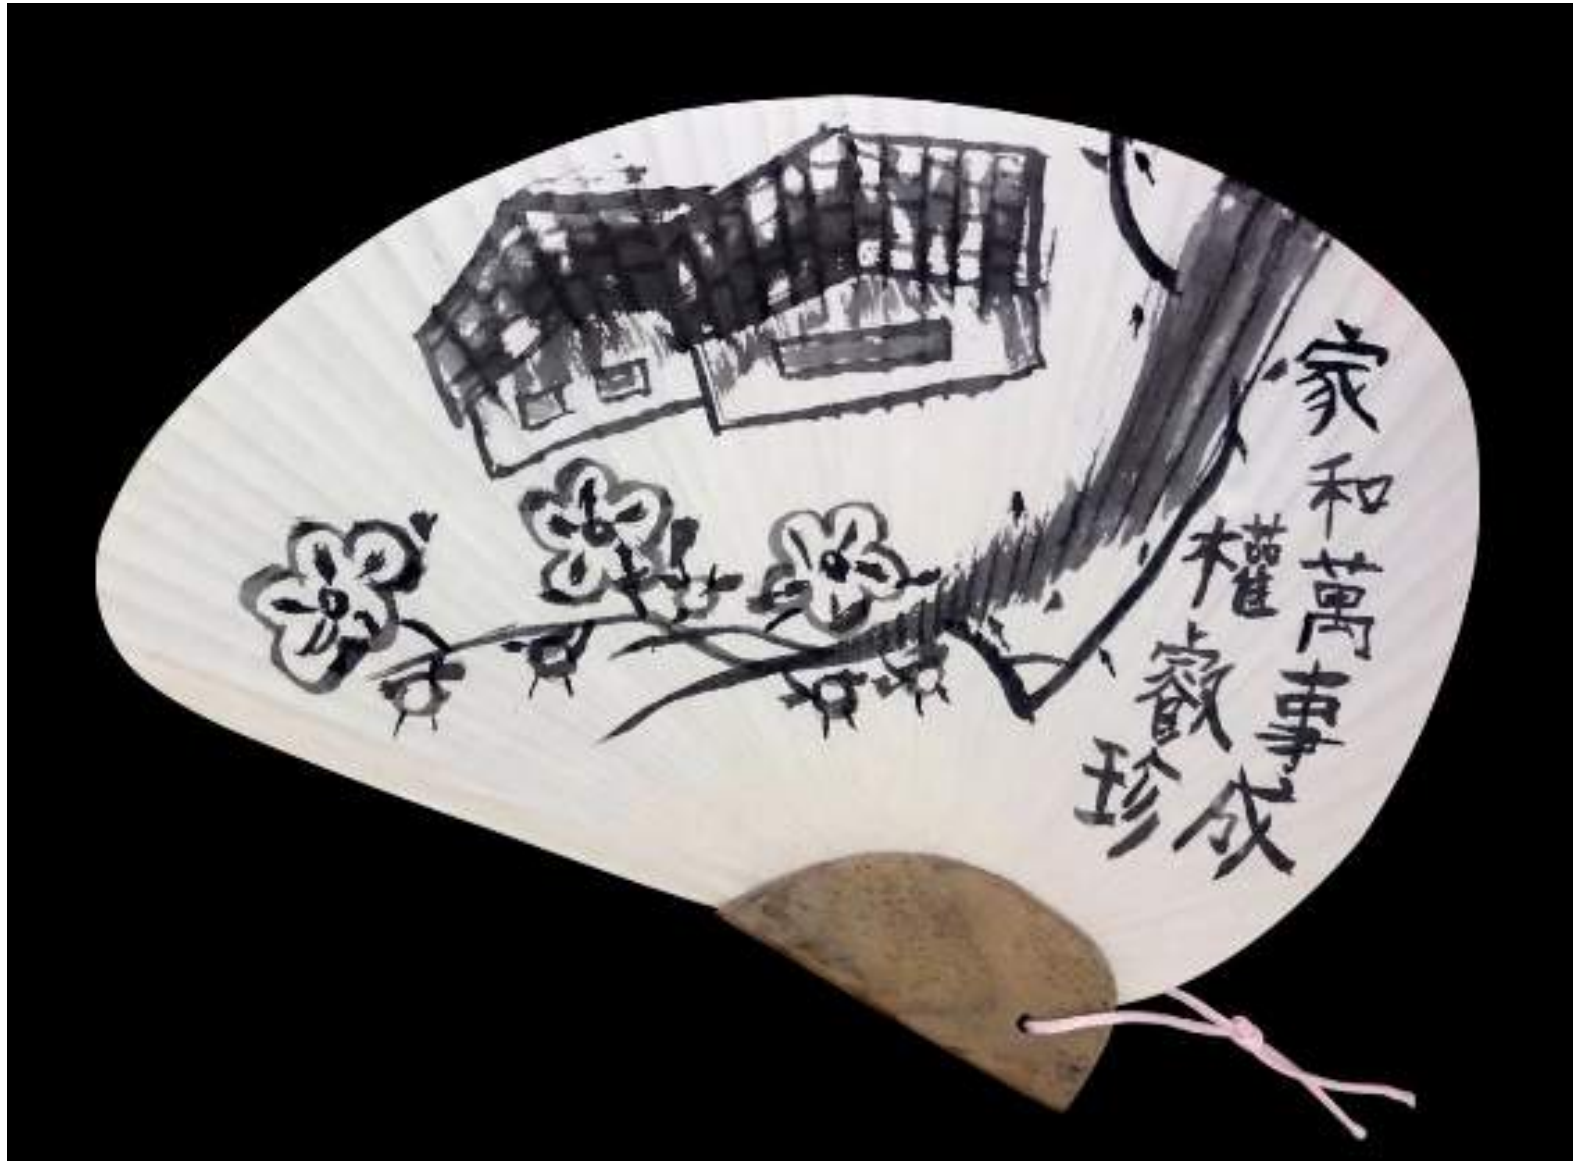 家和萬事成
權叡珍